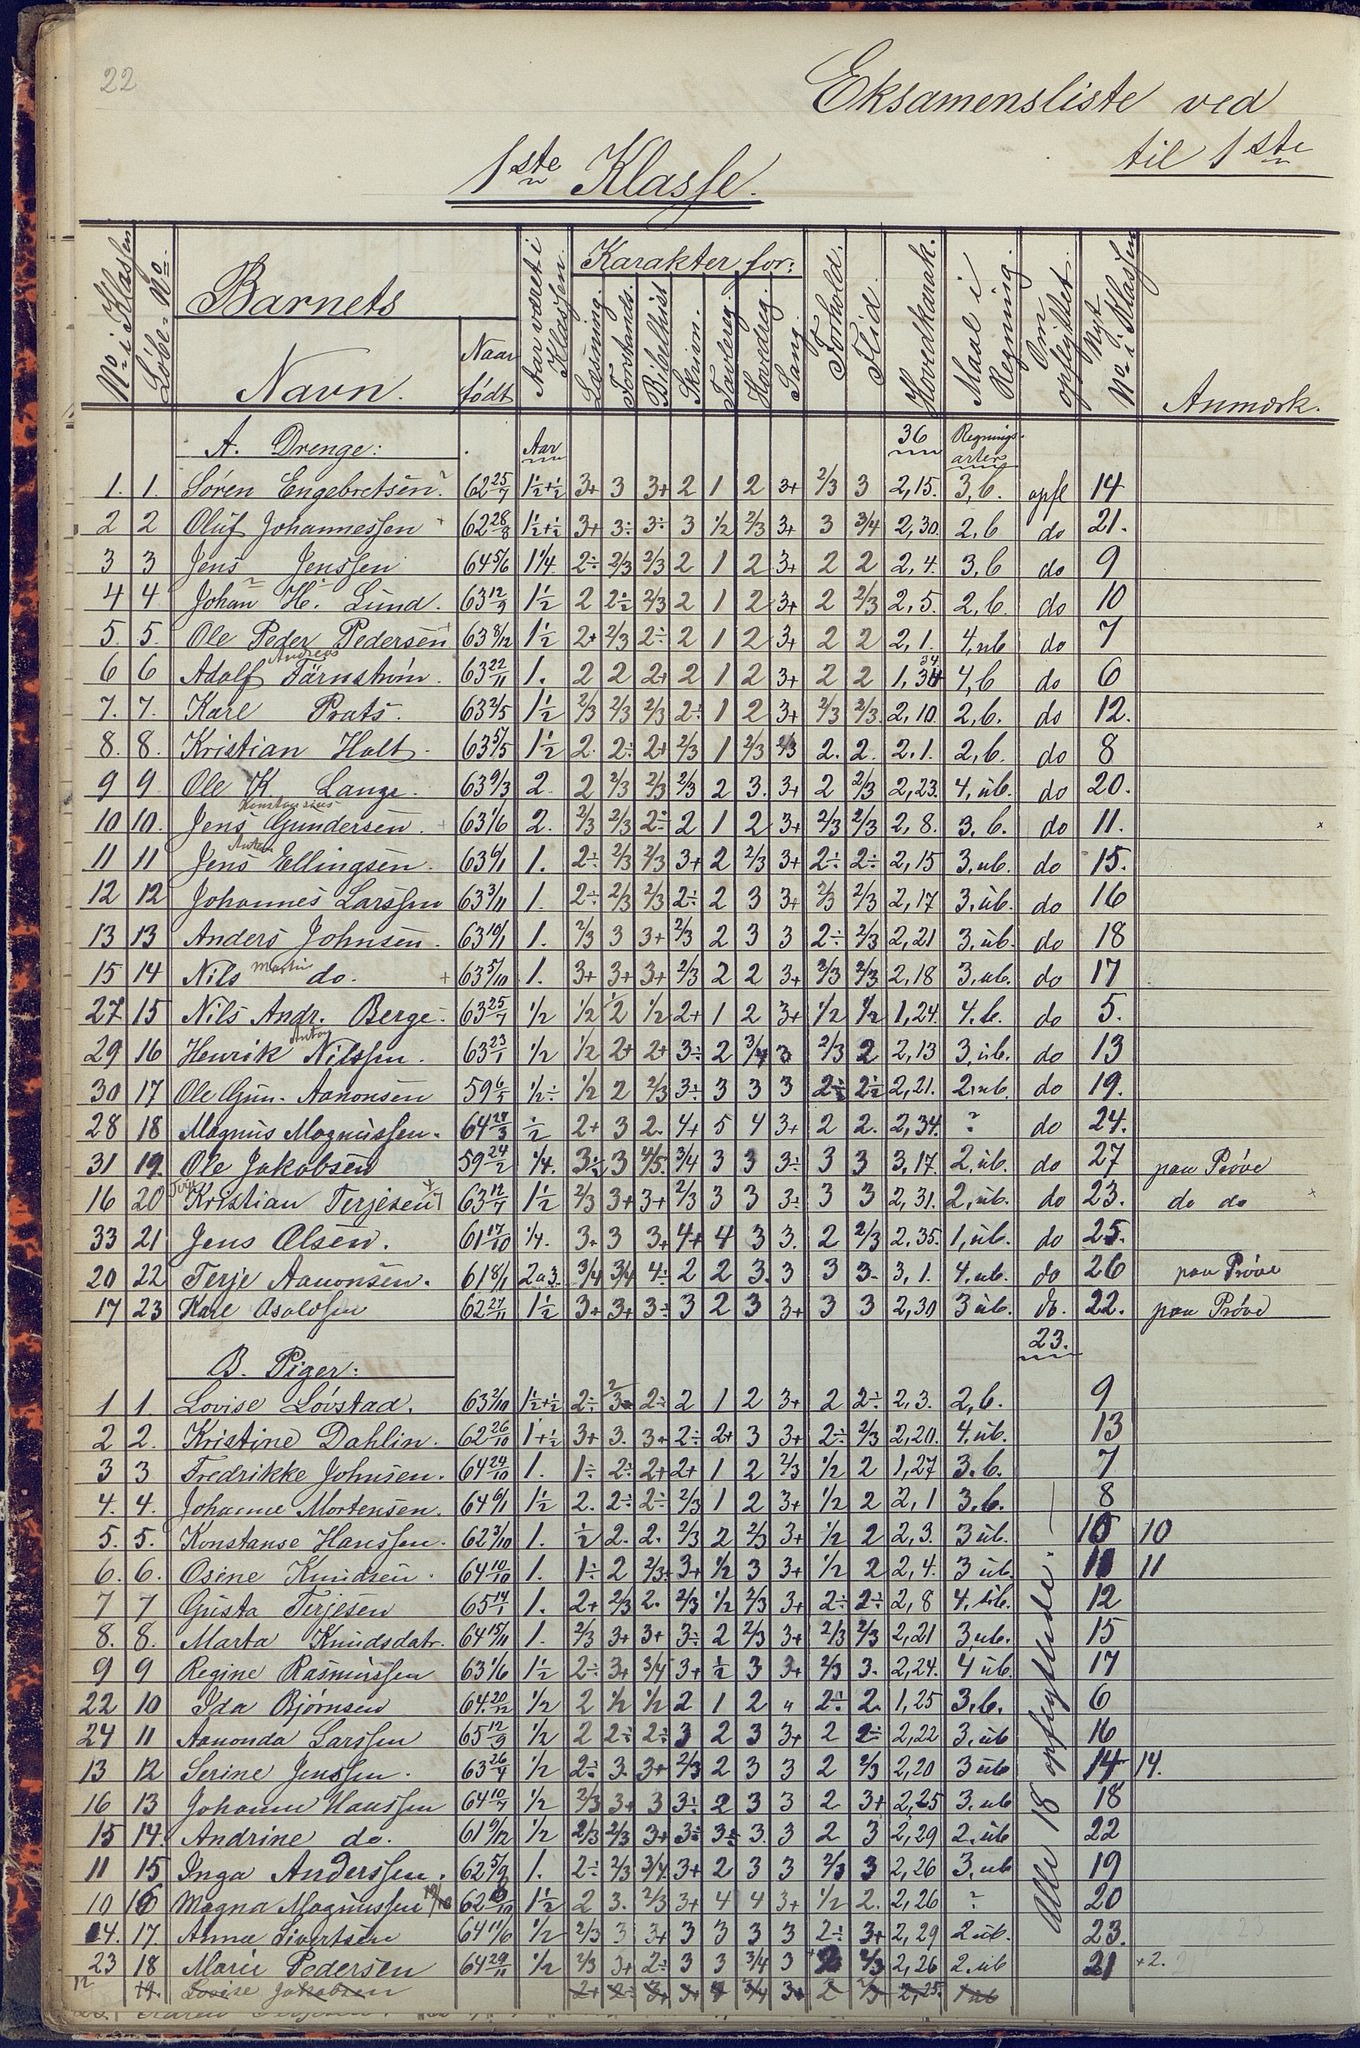 22
Eksamensliste ved
til 1ste
1ste Klasse.
No i Klassen | Löbe-No | Barnets | Aar været i Klassen | Karakter for: | Forhold. | Flid. | Hovedkarak. | Maal i Regning. | Om opflyttet. | Nyt No i Klassen | Anmærk.
Navn. | Naar födt | Læsning. | Forstands. | Bibelhist | Skrivn. | Tavlereg. | Hovedreg. | Sang.
A. Drenge: | Aar | 36 | Regningsarter
1. 1. Sören Engebretsen 62 25/7 1½+½ 3+ 3 3+ 2 1 2 3+ 2/3 3 2,15. 3,b. opfl 14
2 2 Oluf Johannessen 62 28/8 1½+½ 3+ 3÷ 3÷ 3 1/2 2/3 3+ 3 3/4 2,30. 2,b do 21.
3 3 Jens Jenssen 64 5/6 1¼. 2÷ 2/3 2/3 2 1 2 3+ 2 2 2,4. 3,b do 9
4 4 Johan H. Lund. 63 12/9 1½ 2 2÷ 2/3 2 1 2 3+ 2 2/3 2,5. 2,b. do 10
5. 5. Ole Peder Pedersen 63 8/12 1½ 2+ 2/3 2÷ 2 1 2 3+ 2 2 2,1. 4,ub do 7
6 6 Adolf Andreas Färnström. 63 22/11 1. 2 2 2+ 2 1 2 3+ 2 2 1,34 4,b do 6
7. 7. Karl Prats. 63 2/5 1½ 2/3 2/3 2/3 2÷ 1 2 3+ 2/3 2/3 2,10. 2,b. do 12.
8. 8. Kristian Holt. 63 5/5 1½ 2. 2÷ 2+ 2/3 1 2/3 2/3 2. 2. 2.1. 2,b. do 8
9 9. Ole K Lange. 63 9/3 2. 2 2/3 2/3 2/3 2 3. 3+ 2 2/3 2,23. 4,ub. do 20.
10 10. Jens Konstansius Gundersen. 63 1/6 2. 2/3 2/3 2÷ 2 1 2 3+ 2/3 2/3 2,8. 3,b. do 11.
11 11 Jens Anton Ellingsen. 63 6/1 1. 2÷ 2/3 2/3 3+ 2 2/3 3+ 2÷ 2÷ 2,15 3,ub. do 15.
12 12 Johannes Larssen 63 3/11 1. 2÷ 2/3 2/3 2÷ 2 3 3+ 2/3 2/3 2,17 3,ub. do 16
13 13 Anders Johnsen. 63 10/1 1. 2/3 3 3+ 2/3 2 3 3 2÷ 2/3 2,21 3,ub. do 18
15 14 Nils Martin do. 63 5/10 1. 3+ 3+ 3+ 2/3 2 2 3+ 2/3 2/3 2,18 3,ub. do 17
27 15 Nils Andr. Berge. 63 25/7 1/2 1/2 1/2 1/2 2+ 1 2 3+ 1/2 1/2 1,24. 4.b. do 5.
29 16 Henrik Antoy Nilssen. 63 23/1 1/2 1/2 2+ 2+ 3÷ 2 3/4 3 2/3 2 2,13 3,ub. do 13
30 17 Ole Gun. Aanonsen 59 6/5 1/2÷ 1/2 2 2/3 3÷ 3 3 3 2÷ 2÷ 2,21. 2.ub. do 19.
28 18 Magnus Magnussen. 64 24/3 1/2 2+ 3 2. 4+ 5 4 3+ 2 2. 2,34. ? do 24.
31 19. Ole Jakobsen 59 24/2 1/4. 3÷ 3 4/5. 3/4 3 3 3÷ 3 3 3,17. 2,ub. do 27 paa Pröve
16 20 Kristian Terjesen 63 12/7 1½ 2/3 3+ 3+ 2/3 3 3 3÷ 3 3 2,31. 2,ub. do 23. do do
33 21 Jens Olsen. 61 17/10 1/4. 3+ 3 3+ 4+ 4 3 3. 2 2/3 2,35. 1,ub. do 25.
20 22 Terje Aanonsen. 61 8/1 2 a 3. 3/4 3/4 4÷ 2 2 3. 3 3 3. 3,1. 4.ub. do 26 paa Pröve
17 23 Karl Asoldsen 62 27/11 1½ 3+ 3+ 3÷ 3 2 3 3+ 3 3 2,30 3 ub. do. 22. paa Pröve
23.
B. Piger:
1 1. Lovise Lövstad. 63 2/10 1½+½ 2÷ 3 2÷ 2 1 2 3+ 2 2÷ 2,3. 2,b. 9
2 2. Kristine Dahlin. 62 26/10 1+½ 3+ 3. 3+ 2÷ 2+ 3 3+ 2÷ 2/3 2,20. 4.ub. 13
3 3 Fredrikke Johnsen. 64 29/10 1. 1÷ 2÷ 2+ 2+ 1 2 2/3 1/2 2 1,27 3.b. 7
4. 4. Johanne Mortensen. 64 6/1 1½ 2. 2÷ 2÷ 2/3 1 2 3+ 1/2 2 2,1 3.b. 8
5. 5. Konstanse Hanssen. 62 3/10 1. 1/2 2. 2. 2/3 2 2/3 3+ 1/2 2 2,3. 3 ub. 10 10
6. 6. Osine Knudsen. 64 10/10 1. 1÷ 2 2/3 3+ 1/2 3 3+ 1/2 2 2,4. 3 ub. 11 11
7 7 Gusta Terjesen 65 14/1 1. 2+ 2/3 2. 2/3 1/2 2/3 3+ 2÷ 2÷ 2,8 4.ub. 12
8. 8. Marta Knudsdatr. 64 15/11 1. 2/3 3+ 3+ 3÷ 2 2/3 3+ 2/3 2/3 2,21 3,ub. 15
9 9 Regine Rasmussen 63 1/6 1½ 2÷ 3+ 3/4 3+ 1/2 3 3+ 2/3 3. 2,24. 4 ub. 17
22 10 Ida Björnsen 64. 20/12 1/2 2 1/2 1/2 2 1 2 " 2÷ 2. 1,25 3.b. 6
24 11 Aanonda Larssen 65 12/9 1/2 2 2÷ 2÷ 3 2 3 3+ 2 2÷ 2,22 3.ub 16
13 12 Serine Jenssen. 63 26/4 1/2 2÷ 3. 3+ 2/3 2 3 3 2 2/3 2,20 3 ub 14 14.
16 13 Johanne Hanssen 64 10/7 1/2 2/3 3+ 3 3÷ 2 3 3 2 3+ 2,25 3.ub 18
15 14. Andrine do. 61 9/12 1/2 2/3 2/3 3+ 3÷ 3÷ 3. 3 2 3 2,29 2.ub 22
11 15 Inga Anderssen. 62 5/9 1. 2÷ 2/3 3/4. 3+ 2 3 3 2/3 3 2,26 3.ub 19
10 16 Magna Magnussen 19/10 62 1½ 2 3. 2/3 3+ 4 4 3+ 1/2 2. 2,26 ? 20
14. 17. Anna Sivertsen 64 11/6 1/2 2/3 3 3+ 3 3 3 3 2÷ 3+ 2,29 2 ub. 23.
23 18 Marie Pedersen 64 29/11 1/2 2/3 3+ 2÷ 3 3 3/4 3 2 2/3 2,26 2.ub 21 +2.
12 19. Lovise Jakobsen 2+ 2÷ 3+ 3+ 3/4 3+ 2 2/3 2,25. 1 ub
Alle 18 opflyttede.